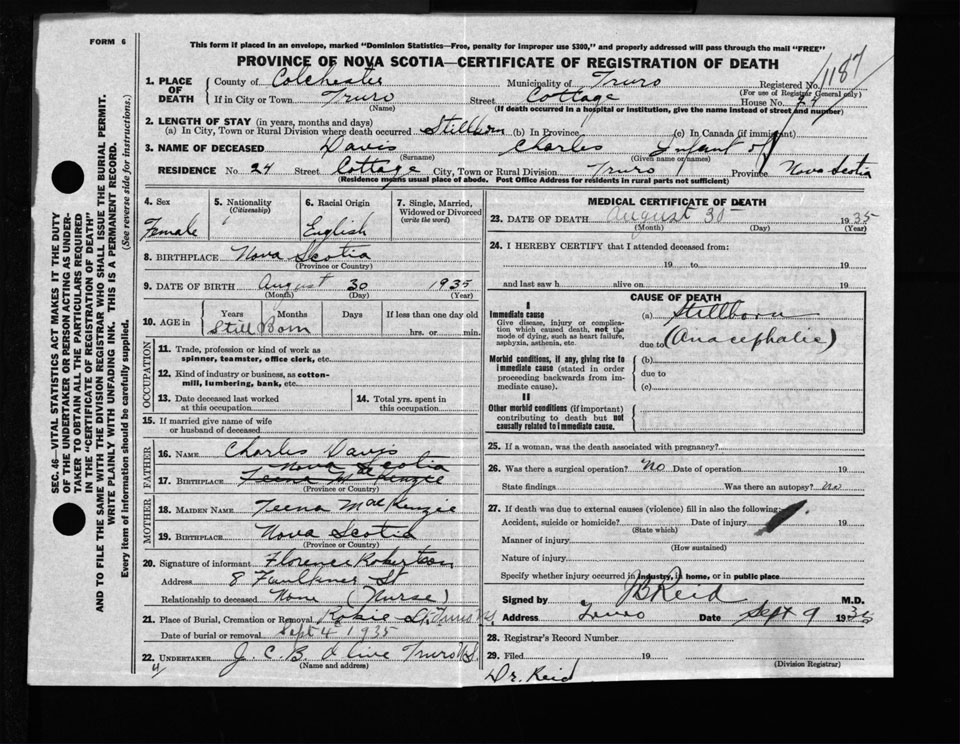 FORM 6
This form if placed in an envelope, marked "Dominion Statistics—Free, penalty for improper use $300," and properly addressed will pass through the mail "FREE"
PROVINCE OF NOVA SCOTIA—CERTIFICATE OF REGISTRATION OF DEATH
1187
1. PLACE OF DEATH
County of Colchester Municipality of Truro Registered No.
(For use of Registrar General only)
If in City or Town Truro Street Cottage House No. 24
(Name) (If death occurred in a hospital or Institution, give the name instead of street and number)
2. LENGTH OF STAY (in years, months and days)
(a) In City, Town or Rural Division where death occurred Stillborn (b) In Province (c) In Canada (if immigrant)
3. NAME OF DECEASED Davis Charles Infant of
(Surname) (Given name or names)
RESIDENCE No. 24 Street Cottage City, Town or Rural Division Truro Province Nova Scotia
(Residence means usual place of abode. Post Office Address for residents in rural parts not sufficient)
SEC. 46—VITAL STATISTICS ACT MAKES IT THE DUTY
OF THE UNDERTAKER OR PERSON ACTING AS UNDER-
TAKER TO OBTAIN ALL THE PARTICULARS REQUIRED
IN THE "CERTIFICATE OF REGISTRATION OF DEATH"
AND TO FILE THE SAME WITH THE DIVISION REGISTRAR WHO SHALL ISSUE THE BURIAL PERMIT.
WRITE PLAINLY WITH UNFADING INK. THIS IS A PERMANENT RECORD.
Every item of information should be carefully supplied. (See reverse side for instructions.)
4. Sex
Female
5. Nationality
(Citizenship)
6. Racial Origin
English
7. Single, Married, Widowed or Divorced
(write the word)
8. BIRTHPLACE Nova Scotia
(Province or Country)
9. DATE OF BIRTH August 30 1935
(Month) (Day) (Year)
10. AGE in Years Months Days If less than one day old
Still Born hrs. or min.
OCCUPATION
11. Trade, profession or kind of work as
spinner, teamster, office clerk, etc.
12. Kind of industry or business, as cotton-
mill, lumbering, bank, etc.
13. Date deceased last worked
at this occupation
14. Total yrs. spent in
this occupation
15. If married give name of wife
or husband of deceased
FATHER
16. NAME Charles Davis
Nova Scotia
17. BIRTHPLACE Teena McKenzie
(Province or Country)
MOTHER
18. MAIDEN NAME Teena MacKenzie
19. BIRTHPLACE Nova Scotia
(Province or Country)
20. Signature of informant Florence Robertson
Address 8 Faulkner St
Relationship to deceased None (Nurse)
21. Place of Burial, Cremation or Removal Robie St Truro NS
Date of burial or removal Sept 4 1935
22. UNDERTAKER J. C. B. Olive Truro NS
(Name and address)
MEDICAL CERTIFICATE OF DEATH
23. DATE OF DEATH August 30 1935
(Month) (Day) (Year)
24. I HEREBY CERTIFY that I attended deceased from:
19 to 19
and last saw h alive on 19
CAUSE OF DEATH
I
Immediate cause
Give disease, injury or complica-
tion which caused death, not the
mode of dying, such as heart failure,
asphyxia, asthenia, etc.
(a) Stillborn
due to (Anacephalic)
Morbid conditions, if any, giving rise to
immediate cause (stated in order
proceeding backwards from im-
mediate cause).
(b)
due to
(c)
II
Other morbid conditions (if important)
contributing to death but not
causally related to immediate cause.
25. If a woman, was the death associated with pregnancy?
26. Was there a surgical operation? No Date of operation 19
State findings Was there an autopsy? no
27. If death was due to external causes (violence) fill in also the following:
Accident, suicide or homicide? Date of injury 19
(State which)
Manner of injury
(How sustained)
Nature of injury
Specify whether injury occurred in industry, in home, or in public place
Signed by JBReid M.D.
Address Truro Date Sept 9 1935
28. Registrar's Record Number
29. Filed 19
(Division Registrar)
Dr. Reid